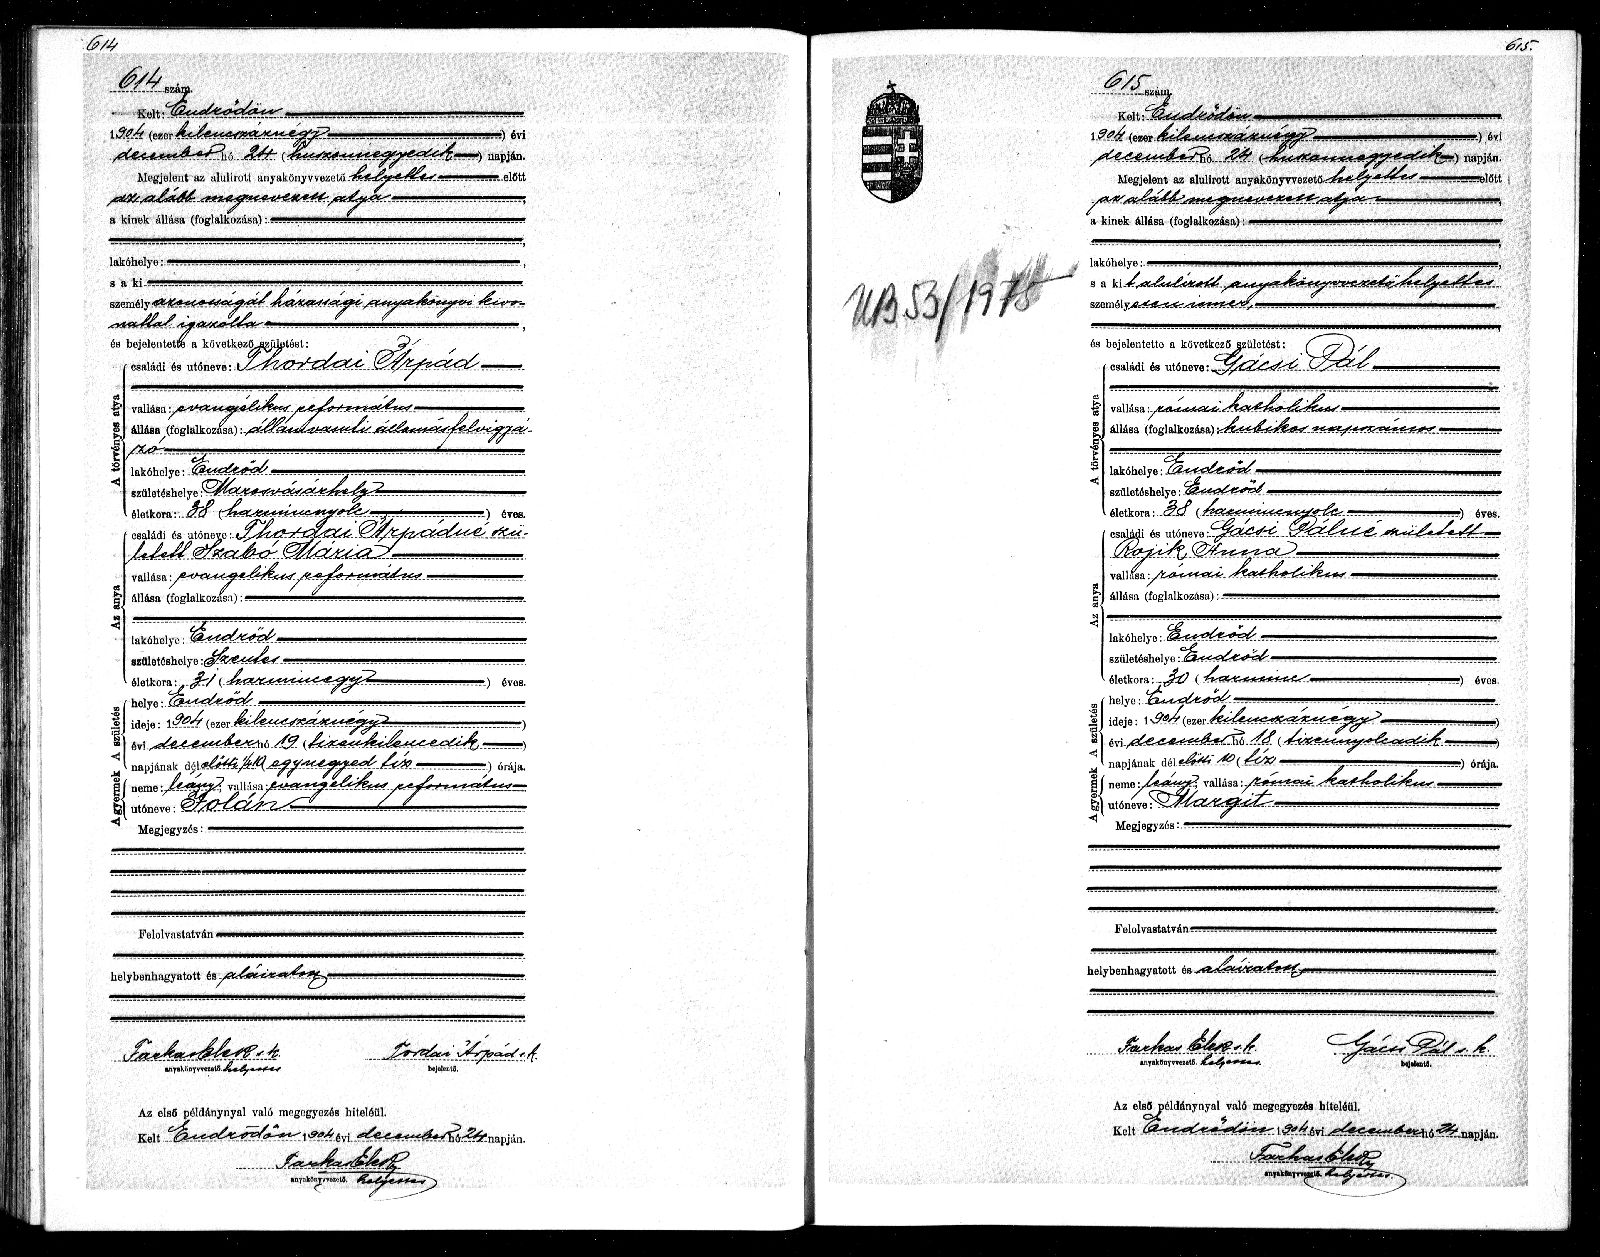 614
614 szám.
Kelt: Endrődön
1904 (ezer kilenczszáznégy) évi
december hó 24 (huszonnegyedik) napján.
Megjelent az alulirott anyakönyvvezető helyettes előtt
az alább megnevezett atya,
a kinek állása (foglalkozása):
,
lakóhelye: ,
s a ki
személyazonosságát házassági anyakönyvi kivo-
nattal igazolta,
és bejelentette a következő születést:
A törvényes atya
családi és utóneve: Thordai Árpád
vallása: evangélikus református
állása (foglalkozása): államvasuti állomásfelvigyá-
zó
lakóhelye: Endrőd
születéshelye: Marosvásárhely
életkora: 38 (harmincnyolc) éves.
Az anya
családi és utóneve: Thordai Árpádné szü-
letett Szabó Mária
vallása: evangelikus református
állása (foglalkozása):
lakóhelye: Endrőd
születéshelye: Szentes
életkora: 31 (harmincegy) éves.
A születés
helye: Endrőd
ideje: 1904 (ezer kilenczszáznégy)
évi december hó 19 (tizenkilencedik)
napjának délelőtti 1/4 10 (egynegyed tíz) órája.
A gyermek
neme: leány, vallása: evangelikus református
utóneve: Jolán
Megjegyzés:
Felolvastatván
helybenhagyatott és aláiratott
Farkas Elek s.k. Tordai Árpád s.k.
anyakönyvvezető helyettes bejelentő.
Az első példánynyal való megegyezés hiteléül.
Kelt Endrődön 1904 évi december hó 24 napján.
Farkas Elek
anyakönyvvezető. helyettes
615.
UB 53/1975
615 szám.
Kelt: Endrődön
1904 (ezer kilenczszáznégy) évi
december hó 24 (huszonnegyedik) napján.
Megjelent az alulirott anyakönyvvezető helyettes előtt
az alább megnevezett atya,
a kinek állása (foglalkozása):
,
lakóhelye: ,
s a kit alulirott anyakönyvvezető helyettes
személyesen ismer,
,
és bejelentette a következő születést:
A törvényes atya
családi és utóneve: Gácsi Pál
vallása: római katholikus
állása (foglalkozása): kubikos napszámos
lakóhelye: Endrőd
születéshelye: Endrőd
életkora: 38 (harmincnyolc) éves.
Az anya
családi és utóneve: Gácsi Pálné született
Rojik Anna
vallása: római katholikus
állása (foglalkozása):
lakóhelye: Endrőd
születéshelye: Endrőd
életkora: 30 (harminc) éves.
A születés
helye: Endrőd
ideje: 1904 (ezer kilenczszáznégy)
évi december hó 18 (tizennyolcadik)
napjának délelőtti 10 (tíz) órája.
A gyermek
neme: leány, vallása: római katholikus
utóneve: Margit
Megjegyzés:
Felolvastatván
helybenhagyatott és aláiratott
Farkas Elek s.k. Gácsi Pál s.k.
anyakönyvvezető. helyettes bejelentő.
Az első példánynyal való megegyezés hiteléül.
Kelt Endrődön 1904 évi december hó 24 napján.
Farkas Elek
anyakönyvvezető. helyettes.